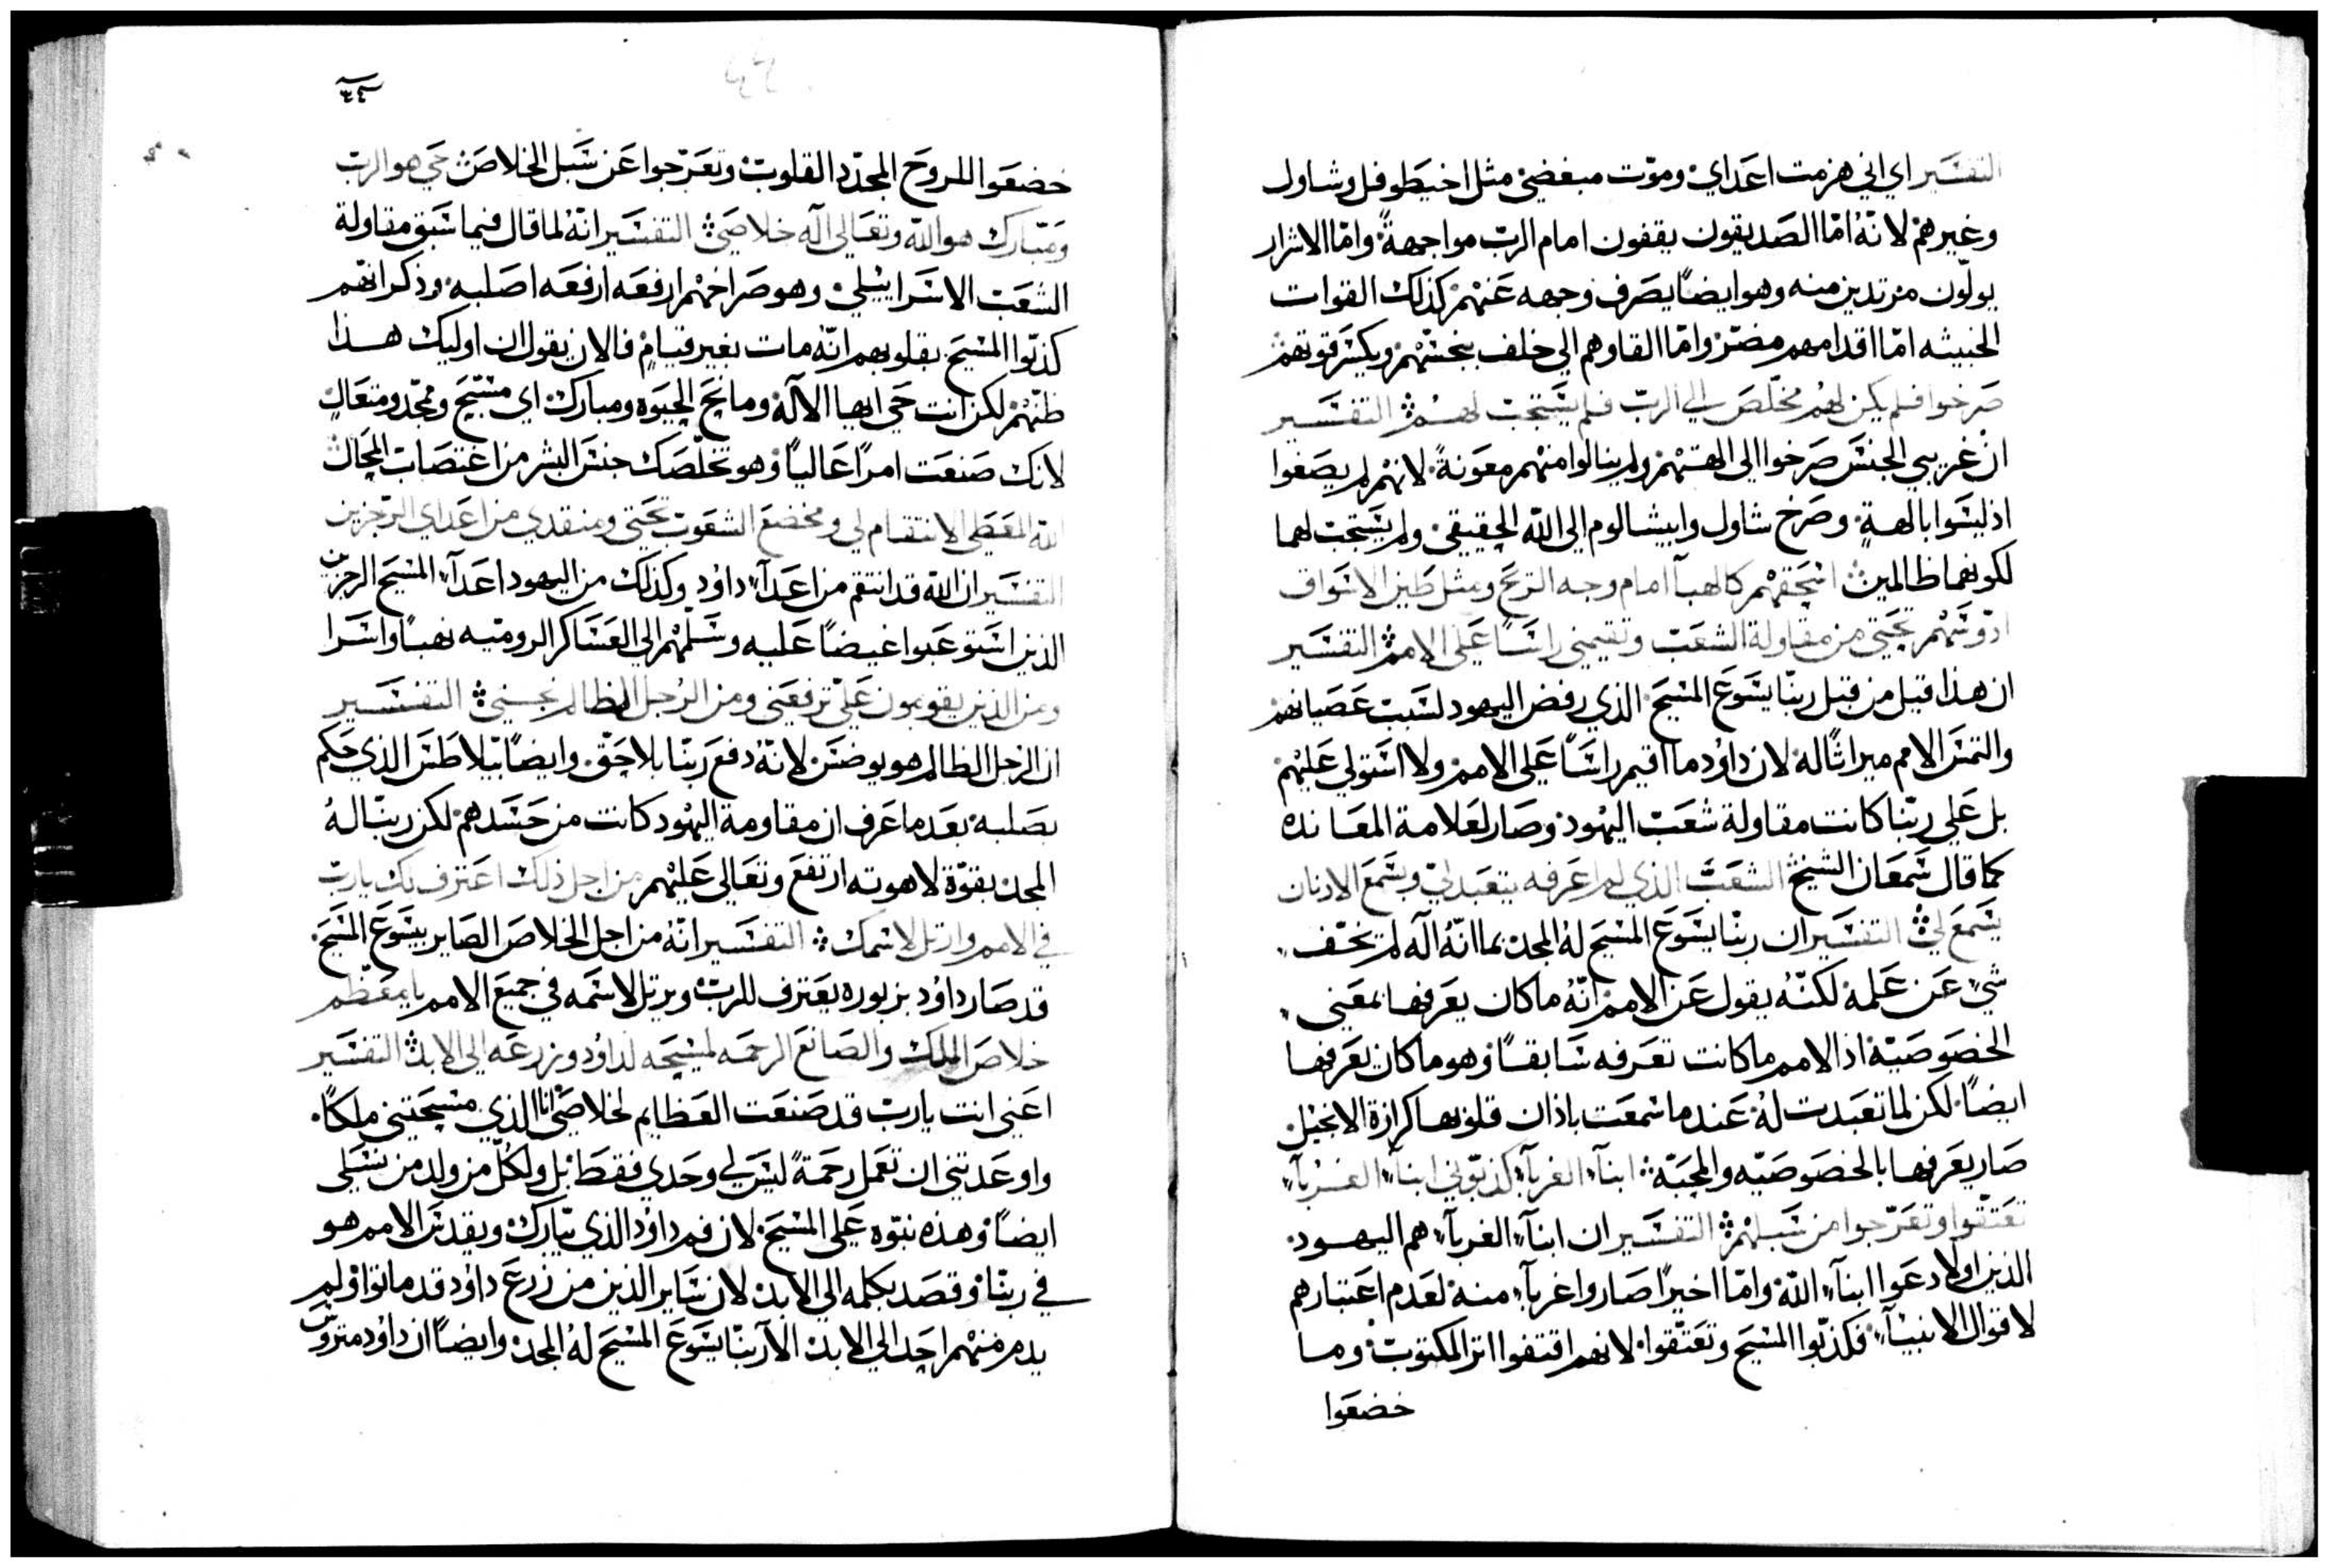 التفسير اي اني هزمت اعداي وموّت مبغضيّ مثل اخيطوفل وشاول
وغيرهم لانهُ امّا الصديقون يقفون امام الربّ مواجهةً وامّا الاشرار
يولّون مرتدين منه وهو ايضاً يصرف وجهه عنهم كذلك القوات
الخبيثه امّا اقدامهم مضرّ وامّا القاوهم الي خلف ينحسهم ويكسر قوتهم
صرخوا فلم يكن لهم مخلّص الي الربّ فلم يستجب لهم التفسير
ان غريبي الجنس صرخوا الي الهتهم ولم ينالوا منهم معونةً لانهم لم يصغوا
اذ ليسوا بالهةٍ وصرخ شاول وابيشالوم الي الله الحقيقي ولم يستجب لهما
لكونهما ظالمين اسحقهم كالهبآ امام وجه الريح ومثل طين الاسواق
ادوسهم نجّيني من مقاولة الشعب وتقيمني راساً علي الامم التفسير
ان هذا قيل من قبل ربّنا يسوع المسيح الذي رفض اليهود لسبب عصيانهم
والتمس الامم ميراثاً له لان داوُد ما اقيم راساً علي الامم ولا استولي عليهم
بل علي ربّنا كانت مقاولة شعب اليهود وصار لعلامة المعانده
كما قال سمعان الشيخ الشعب الذي لم اعرفه يتعبد لي وبسمع الاذنان
يسمع لي التفسير ان ربّنا يسوع المسيح لهُ المجد بما انّهُ اله لم تخف
شيً عن علمه لكنّهُ يقول عن الامم انّهُ ما كان يعرفها بمعني
الخصوصيّة اذ الامم ما كانت تعرفه سابقاً وهو ما كان يعرفها
ايضاً لكن لما تعبدت لهُ عندما سمعت باذان قلوبها كرازة الانجيل
صار يعرفها بالخصوصيّه والمحبّة ابنآء الغربآء كذبوني ابنآء الغربآء
تعتّقوا وتعرّجوا من سبلهم التفسير ان ابنآء الغربآء هم اليهود
الذين اولاً دعوا ابنآء الله وامّا اخيرًا صاروا غربآء منه لعدم اعتبارهم
لاقوال الانبيآء فكذبّوا المسيح وتعتّقوا لانهم اقتفوا اثر المكتوب وما
خضعوا
٣٤
خضعوا للروح المجدّد القلوب وتعرّجوا عن سبل الخلاص حي هو الربّ
ومبارك هو الله وتعالي اله خلاصي التفسير انهُ لما قال فيما سبق مقاولة
الشعب الاسراييلي وهو صراخهم ارفعه ارفعه اصلبه وذكر انهم
كذبّوا المسيح بقلوبهم انّه مات بغير قيامٍ فالان يقول ان اوليك هذا
ظنّهم لكن انت حي ايها الاله ومانح الحيوه ومبارك اي مسبّح وممجّد ومتعال
لانك صنعت امرًا عالياً وهو تخلّصك جنس البشر من اغتصاب المحال
الله المعطي الانتقام لي ومخضع الشعوب تحتي ومنقذي من اعداي الرجزين
التفسير ان الله قد انتقم من اعدآء داوُد وكذلك من اليهود اعدآء المسيح الرجزين
الذين استوعبوا غيضاً عليه وسلّمهم الي العساكر الروميّه نهباً واسرا
ومن الذين يقومون عليّ ترفعني ومن الرجل الظالم نجّيني التفسير
ان الرجل الظالم هو يوضس لانهُ دفع ربّنا بلا حقّ وايضاً بيلاطس الذي حكم
بصلبه بعد ما عرف ان مقاومة اليهود كانت من حسدهم لكن ربّنا لهُ
المجد بقوّة لاهوته ارتفع وتعالي عليهم من اجل ذلك اعترف لك يا ربّ
في الامم وارتل لاسمك التفسير انّهُ من اجل الخلاص الصاير بيسوع المسيح
قد صار داوُد بزبوره يعترف للربّ ويرتل لاسمه في جميع الامم يا معظّم
خلاص الملك والصانع الرحمه لمسيحه لداوُد وزرعه الي الابد التفسير
اعني انت يا ربّ قد صنعت العظايم لخلاصي انا الذي مسحتني ملكاً
واوعدتني ان تعمل رحمةً ليس لي وحدي فقط بل ولكلّ من ولد من نسلي
ايضاً وهذه نبوّه علي المسيح لان فم داوُد الذي يبّارك ويقدس الامم هو
في ربّنا وقصد بكلمه الي الابد لان ساير الذين من زرع داوُد قد ماتوا ولم
يدم منهم احد الي الابد الاّ ربّنا يسوع المسيح لهُ المجد وايضاً ان داوُد متروس